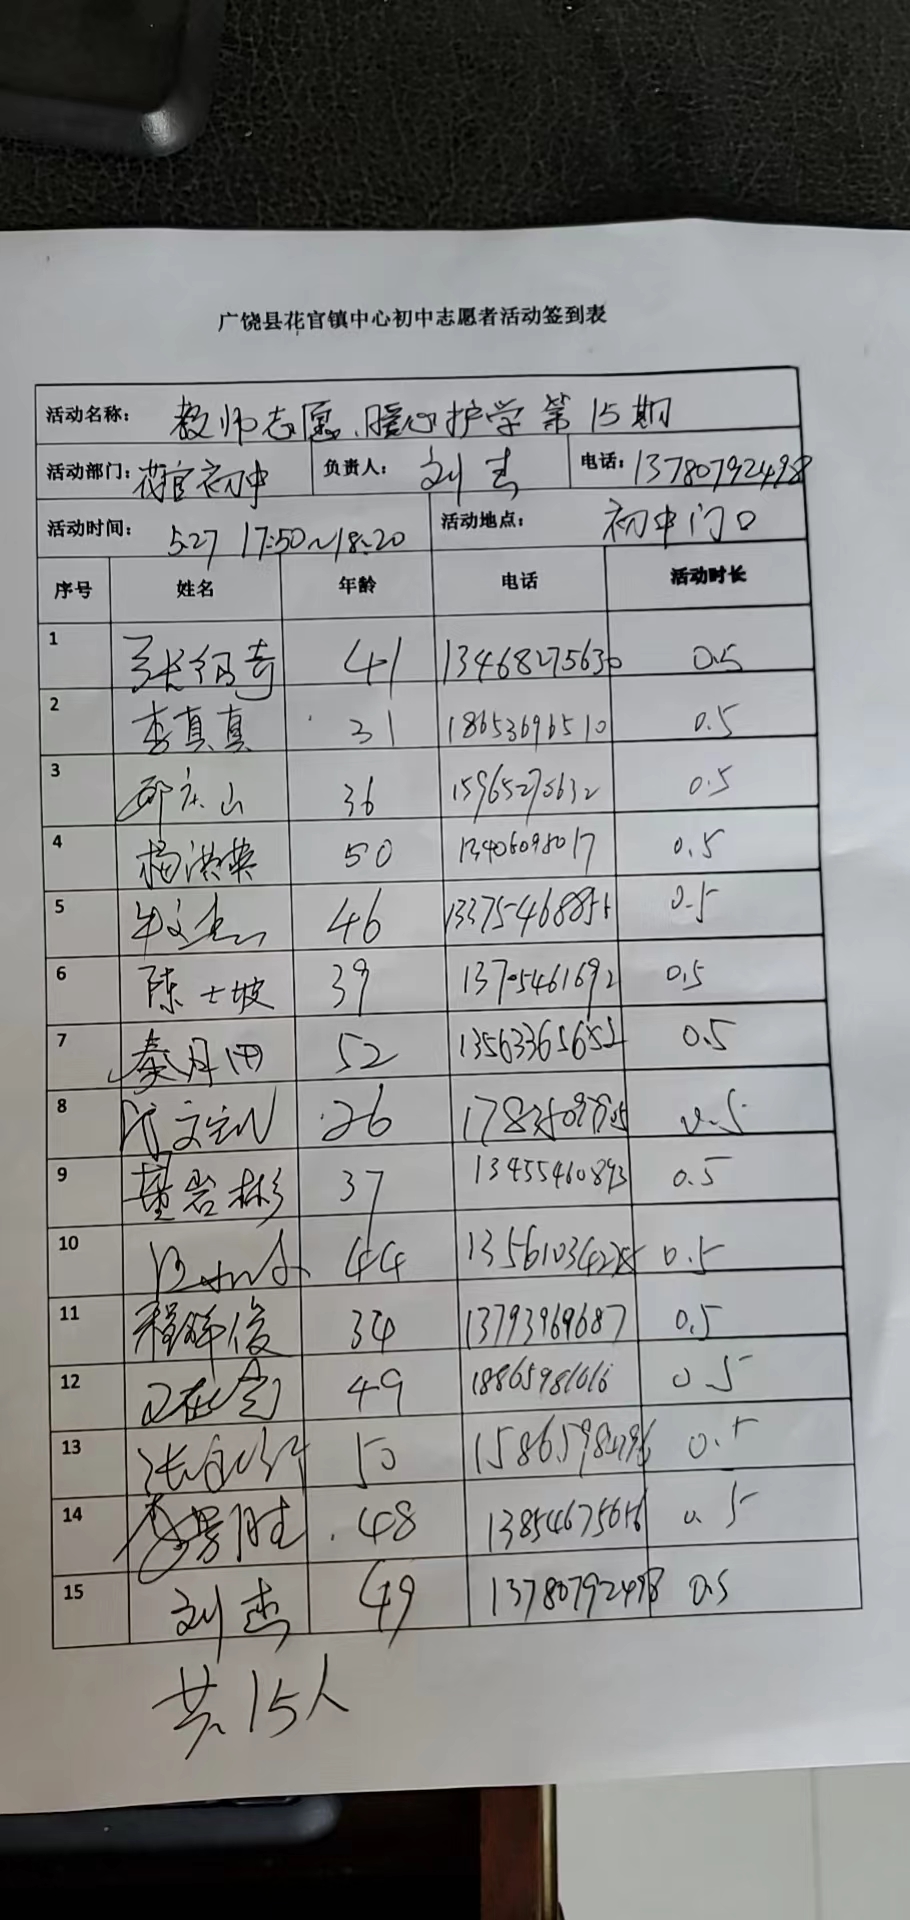 广饶县花官镇中心初中志愿者活动签到表
活动名称: 教师志愿、暖心护学第15期
活动部门: 花官初中 负责人: 刘杰 电话: 13780792498
活动时间: 5.27 17:50~18:20 活动地点: 初中门口
序号 姓名 年龄 电话 活动时长
1 41 13468275630 0.5
2 李真真 31 18653696510 0.5
3 36 15965275632 0.5
4 杨洪英 50 13406098017 0.5
5 46 0.5
6 陈士坡 39 13705461692 0.5
7 秦月田 52 13563365652 0.5
8 26 0.5
9 董岩彬 37 13455460893 0.5
10 44 0.5
11 程晖俊 34 13793969687 0.5
12 49 0.5
13 50 0.5
14 李景胜 48 13854675656 0.5
15 刘杰 49 13780792498 0.5
共15人